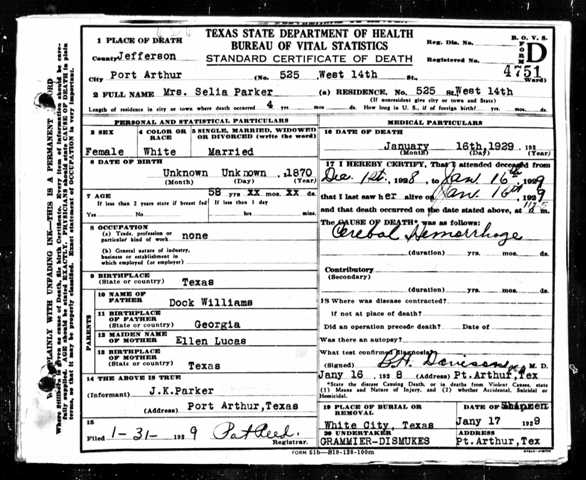 TEXAS STATE DEPARTMENT OF HEALTH
BUREAU OF VITAL STATISTICS
STANDARD CERTIFICATE OF DEATH
B. O. V. S.
FORM D
Reg. Dis. No.
Registered No. 4751
1 PLACE OF DEATH
County Jefferson
City Port Arthur (No. 525 West 14th St., Ward)
2 FULL NAME Mrs. Selia Parker (a) RESIDENCE, No. 525 St. West 14th
(If nonresident give city or town and State)
Length of residence in city or town where death occurred 4 yrs. mos. ds. How long in U. S., if of foreign birth? yrs. mos. ds.
PERSONAL AND STATISTICAL PARTICULARS
3 SEX 4 COLOR OR RACE 5 SINGLE, MARRIED, WIDOWED OR DIVORCED (write the word)
Female White Married
6 DATE OF BIRTH
Unknown Unknown , 1870
(Month) (Day) (Year)
7 AGE 58 yrs xx mos. xx ds.
If less than 2 years state if breast fed If less than 1 day
Yes No hrs. min.
8 OCCUPATION
(a) Trade, profession or particular kind of work none
(b) General nature of industry, business or establishment in which employed (or employer)
9 BIRTHPLACE
(State or country) Texas
PARENTS
10 NAME OF FATHER Dock Williams
11 BIRTHPLACE OF FATHER
(State or country) Georgia
12 MAIDEN NAME OF MOTHER Ellen Lucas
13 BIRTHPLACE OF MOTHER
(State or country) Texas
14 THE ABOVE IS TRUE
(Informant) J.K.Parker
(Address) Port Arthur,Texas
15
Filed 1-31- 1929 Pat Reed.
Registrar.
MEDICAL PARTICULARS
16 DATE OF DEATH
January 16th,1929 .192
(Month) (Day) (Year)
17 I HEREBY CERTIFY, That I attended deceased from
Dec. 1st, 1928, to Jan. 16th 1929
that I last saw her alive on Jan. 16th 1929
and that death occurred on the date stated above, at m.
The CAUSE OF DEATH* was as follows:
Cerebal Hemorrhage
(duration) yrs. mos. ds.
Contributory
(Secondary)
(duration) yrs. mos. ds.
18 Where was disease contracted?
If not at place of death?
Did an operation precede death? Date of
Was there an autopsy?
What test confirmed diagnosis?
(Signed) M. D.
Jany 16 , 192 8 (Address) Pt.Arthur,Tex
*State the disease Causing Death, or in deaths from Violent Causes, state (1) Means and Nature of Injury, and (2) whether Accidental, Suicidal or Homicidal.
19 PLACE OF BURIAL OR REMOVAL DATE OF
White City, Texas Jany 17 1929
20 UNDERTAKER (Address)
GRAMMIER-DISMUKES Pt.Arthur,Tex
FORM 51b-810-128-100m